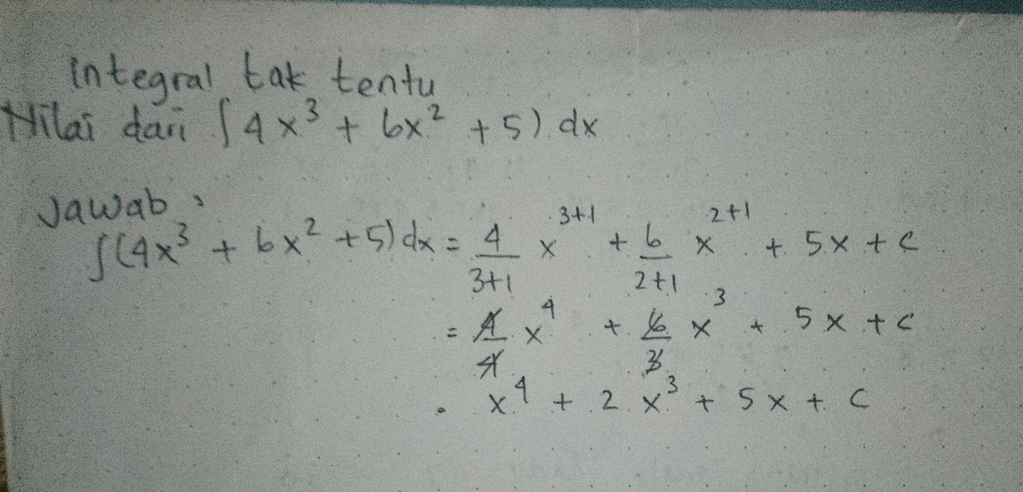 Integral tak tentu
Nilai dari ∫4x³ + 6x² + 5) dx
Jawab :
∫(4x³ + 6x² + 5) dx = 4/(3+1) x^(3+1) + 6/(2+1) x^(2+1) + 5x + c
= 4/4 x⁴ + 6/3 x³ + 5x + c
. x⁴ + 2 x³ + 5x + C